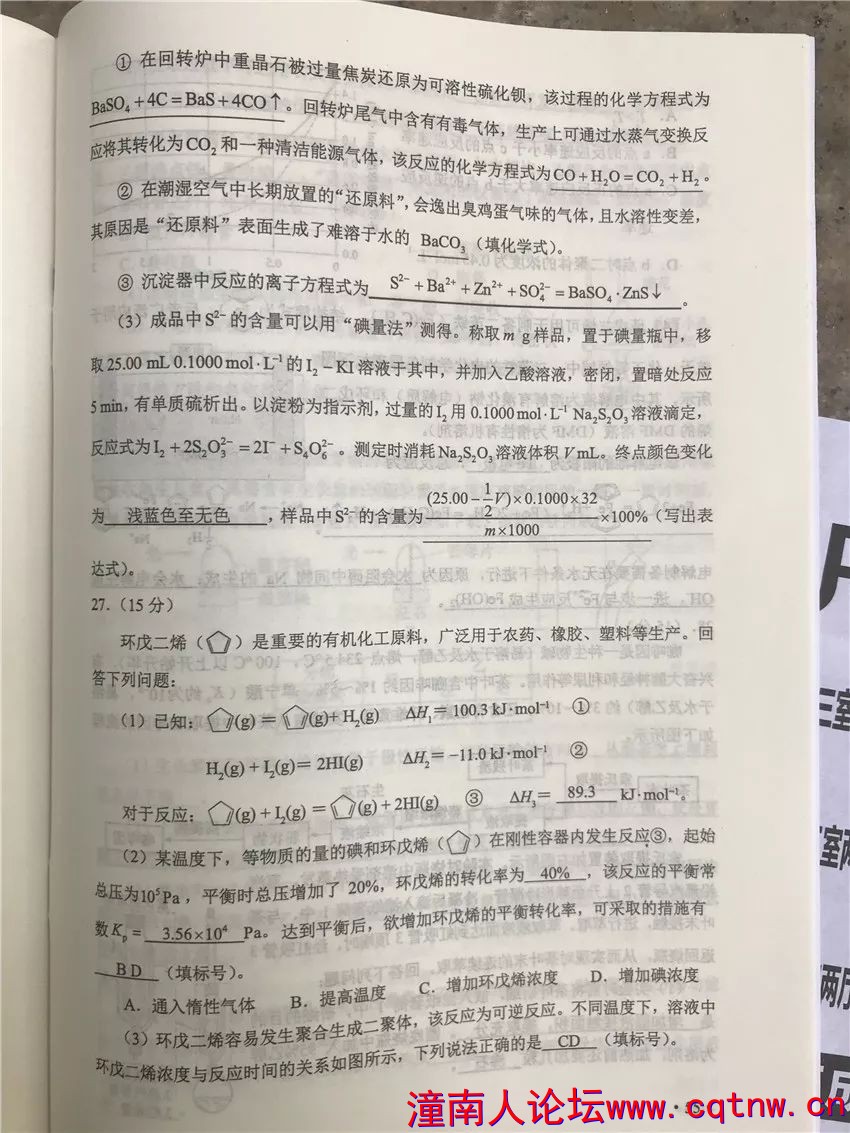 ① 在回转炉中重晶石被过量焦炭还原为可溶性硫化钡，该过程的化学方程式为
BaSO₄+4C=BaS+4CO↑。回转炉尾气中含有有毒气体，生产上可通过水蒸气变换反
应将其转化为CO₂和一种清洁能源气体，该反应的化学方程式为CO+H₂O=CO₂+H₂。
② 在潮湿空气中长期放置的“还原料”，会逸出臭鸡蛋气味的气体，且水溶性变差，
其原因是“还原料”表面生成了难溶于水的 BaCO₃（填化学式）。
③ 沉淀器中反应的离子方程式为 S²⁻+Ba²⁺+Zn²⁺+SO₄²⁻=BaSO₄·ZnS↓ 。
（3）成品中S²⁻的含量可以用“碘量法”测得。称取m g样品，置于碘量瓶中，移
取25.00 mL 0.1000 mol·L⁻¹的I₂－KI溶液于其中，并加入乙酸溶液，密闭，置暗处反应
5 min，有单质硫析出。以淀粉为指示剂，过量的I₂用0.1000 mol·L⁻¹ Na₂S₂O₃溶液滴定，
反应式为I₂+2S₂O₃²⁻=2I⁻+S₄O₆²⁻。测定时消耗Na₂S₂O₃溶液体积V mL。终点颜色变化
为 浅蓝色至无色 ，样品中S²⁻的含量为 (25.00－1/2V)×0.1000×32/m×1000 ×100%（写出表
达式）。
27.（15分）
环戊二烯（）是重要的有机化工原料，广泛用于农药、橡胶、塑料等生产。回
答下列问题：
（1）已知：(g) = (g)+H₂(g) ΔH₁=100.3 kJ·mol⁻¹ ①
H₂(g)+I₂(g)=2HI(g) ΔH₂=−11.0 kJ·mol⁻¹ ②
对于反应：(g)+I₂(g) = (g)+2HI(g) ③ ΔH₃= 89.3 kJ·mol⁻¹。
（2）某温度下，等物质的量的碘和环戊烯（）在刚性容器内发生反应③，起始
总压为10⁵Pa，平衡时总压增加了20%，环戊烯的转化率为 40% ，该反应的平衡常
数Kₚ= 3.56×10⁴ Pa。达到平衡后，欲增加环戊烯的平衡转化率，可采取的措施有
BD （填标号）。
A．通入惰性气体 B．提高温度 C．增加环戊烯浓度 D．增加碘浓度
（3）环戊二烯容易发生聚合生成二聚体，该反应为可逆反应。不同温度下，溶液中
环戊二烯浓度与反应时间的关系如图所示，下列说法正确的是 CD （填标号）。
潼南人论坛www.cqtnw.cn